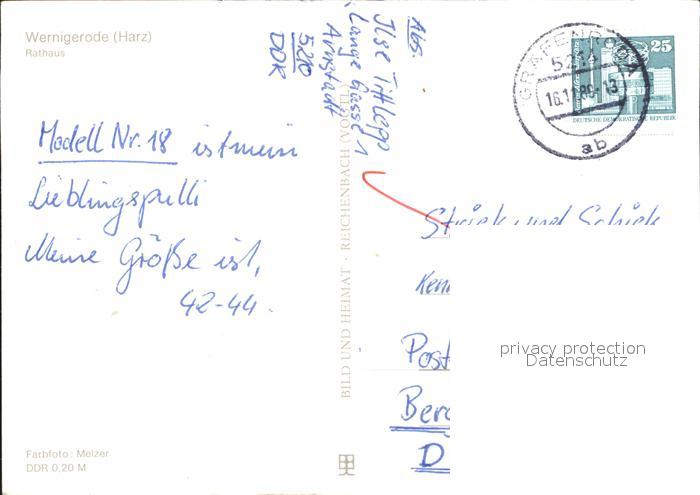 Wernigerode (Harz)
Rathaus
Modell Nr. 18 ist mein
Lieblingspulli
Meine Größe ist,
42-44.
Farbfoto: Melzer
DDR 0,20 M
BILD UND HEIMAT · REICHENBACH (VOGTL)
Abs.
Ilse
Lange Gasse 1
Arnstadt
5210
DDR
GRÄFENRODA
5214
16.11.89-13
ab
25
DEUTSCHE DEMOKRATISCHE REPUBLIK
Strick und Schick
Post
D
privacy protection
Datenschutz